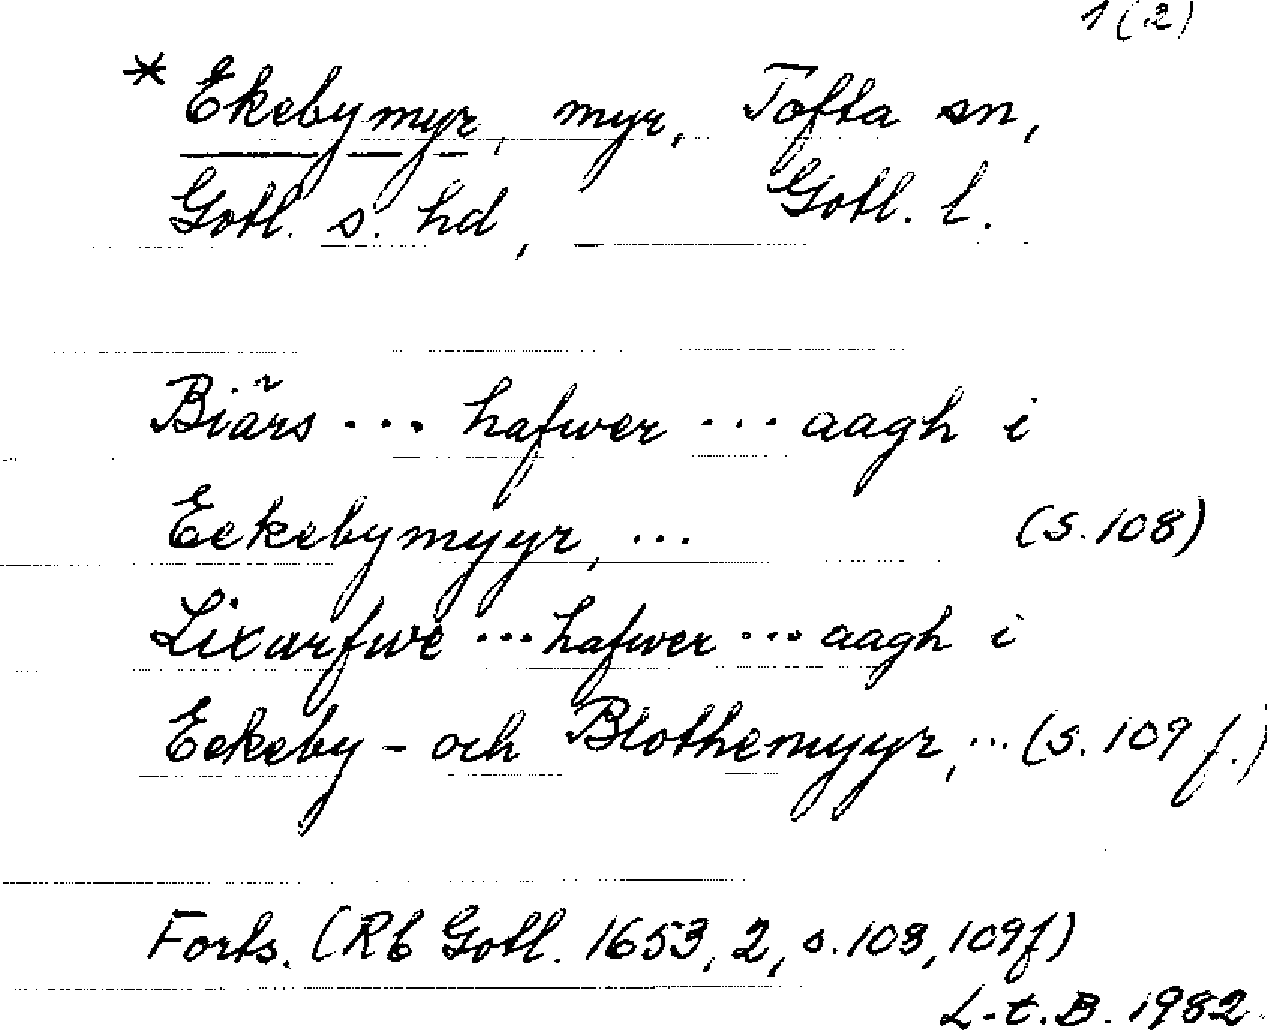 1 (2)
* Ekebymyr, myr, Tofta sn,
Gotl. s. hd, Gotl. l.
Biärs ... hafwer ... aagh i
Eekebymyyr, ... (s. 108)
Lixarfwe ... hafwer ... aagh i
Eekeby- och Blothemyyr, ... (s. 109 f.)
Forts. (Rb Gotl. 1653, 2, s. 108, 109f)
L-t. B. 1982.